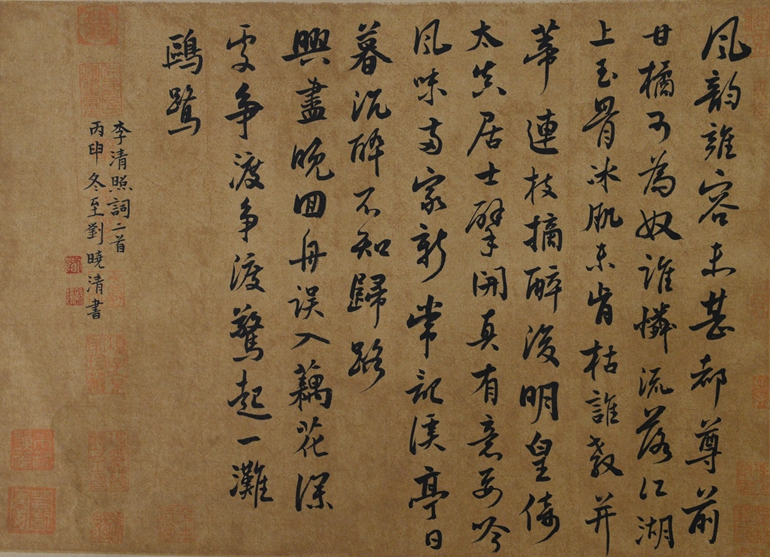 風韵雍容未甚都尊前
甘橘可為奴誰憐流落江湖
上玉骨冰肌未肯枯誰教并
蒂連枝摘醉後明皇倚
太真居士擘開真有意要吟
風味兩家新常記溪亭日
暮沉醉不知歸路
興盡晚回舟误入藕花深
處争渡争渡驚起一灘
鷗鷺
李清照詞二首
丙申冬至劉曉清書